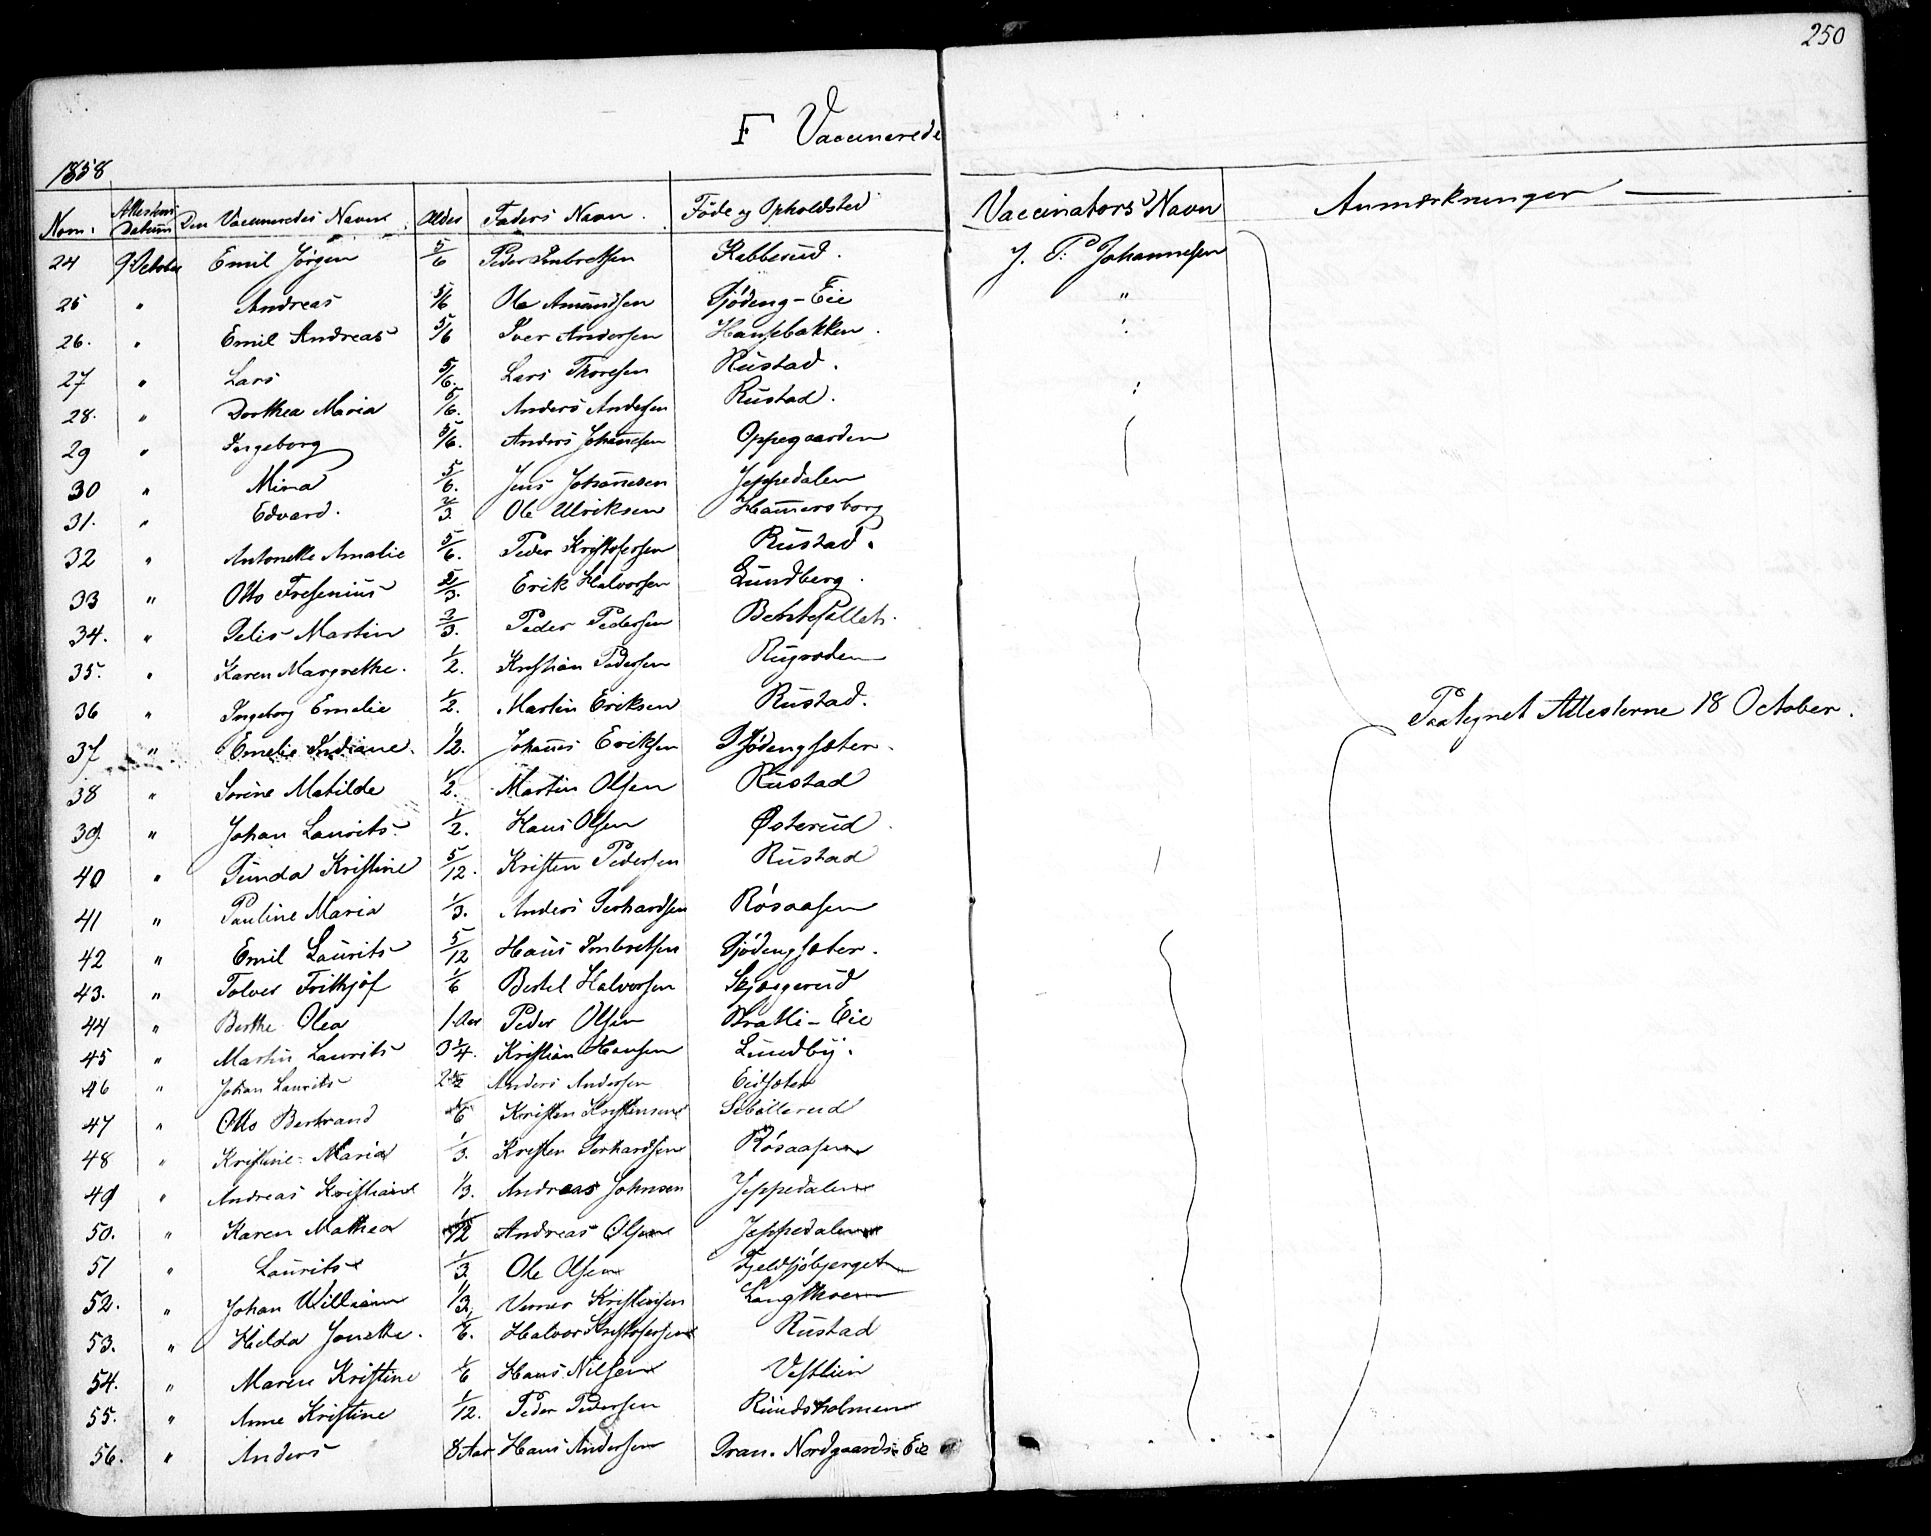 250
F Vaccinerede
1858
Nom. Attestens Datum Den Vaccineredes Navn Alder Faders Navn. Føde og Opholdsted Vaccinators Navn Anmærkninger
24 9 October Emil Jørgen 5/6 Peder Imbretsen Kabberud. J. P. Johannesen
25 " Andreas 5/6 Ole Amundsen Tjødeng-Eie "
26. " Emil Andreas 5/6 Iver Andersen Hansebakken. "
27 " Lars 5/6. Lars Thoresen Rustad.
28. " Dorthea Maria 5/6. Anders Andersen Rustad. "
29 " Ingeborg 5/6. Anders Johannesen Oppegaarden
30 " Mina 5/6. Jens Johannesen Jeppedalen
31. " Edvard. 2/3. Ole Ulriksen Hammersborg
32 " Antonette Amalie 5/6. Peder Kristofersen Rustad.
33 " Otto Fresenius 2/3. Erik Halvorsen Lundberg.
34. " Pelis Martin 2/3. Peder Pedersen
35. " Karen Margrethe. 1/2. Kristian Pedersen Rugroden
36 " Ingeborg Emelie 1/2. Martin Eriksen Rustad. Paategnet Attesterne 18 October.
37 " Emelie Indiane. 1/2. Johannes Eriksen Tjødengsæter.
38 " Sorine Matilde 1/2. Martin Olsen Rustad
39. " Johan Laurits 1/2. Hans Olsen Østerud.
40 " Gunda Kristine 5/12. Kristen Pedersen Rustad
41 " Pauline Maria 1/3. Anders Gerhardsen Rösaasen
42 " Emil Laurits 5/12 Hans Imbretsen Tjødengsæter.
43. " Tolver Frithjof 1/6 Bertel Halvorsen Skjægerud
44 " Berthe Olea 1 Aar Peder Olsen Bratli-Eie
45 " Martin Laurits 3 1/4. Kristian Hansen Lundby.
46 " Johan Laurits 2 1/2 Anders Andersen Eidsæter
47 " Otto Bertrand 1/6 Kristen Kristensen Sibillerud
48 " Kristine Maria 1/3. Kristen Gerhardsen Rösaasen
49 " Andreas Kristian 1/3. Andreas Johnsen Jeppedalen
50. " Karen Mathea 1/2 Andreas Olsen Jeppedalen
51 " Laurits 1/3. Ole Olsen Fjeldsjöbjerget
52. " Johan William 1/3. Verner Kristiansen
53. " Hilda Jonette. 1/6. Halvor Kristofersen Rustad
54. " Maren Kristine 1/6 Hans Nilsen Vestliin
55. " Anne Kristine 1/12. Peder Pedersen Rundsholmen
56. " Anders 8 Aar Hans Andersen Gran. Nordgaards Eie